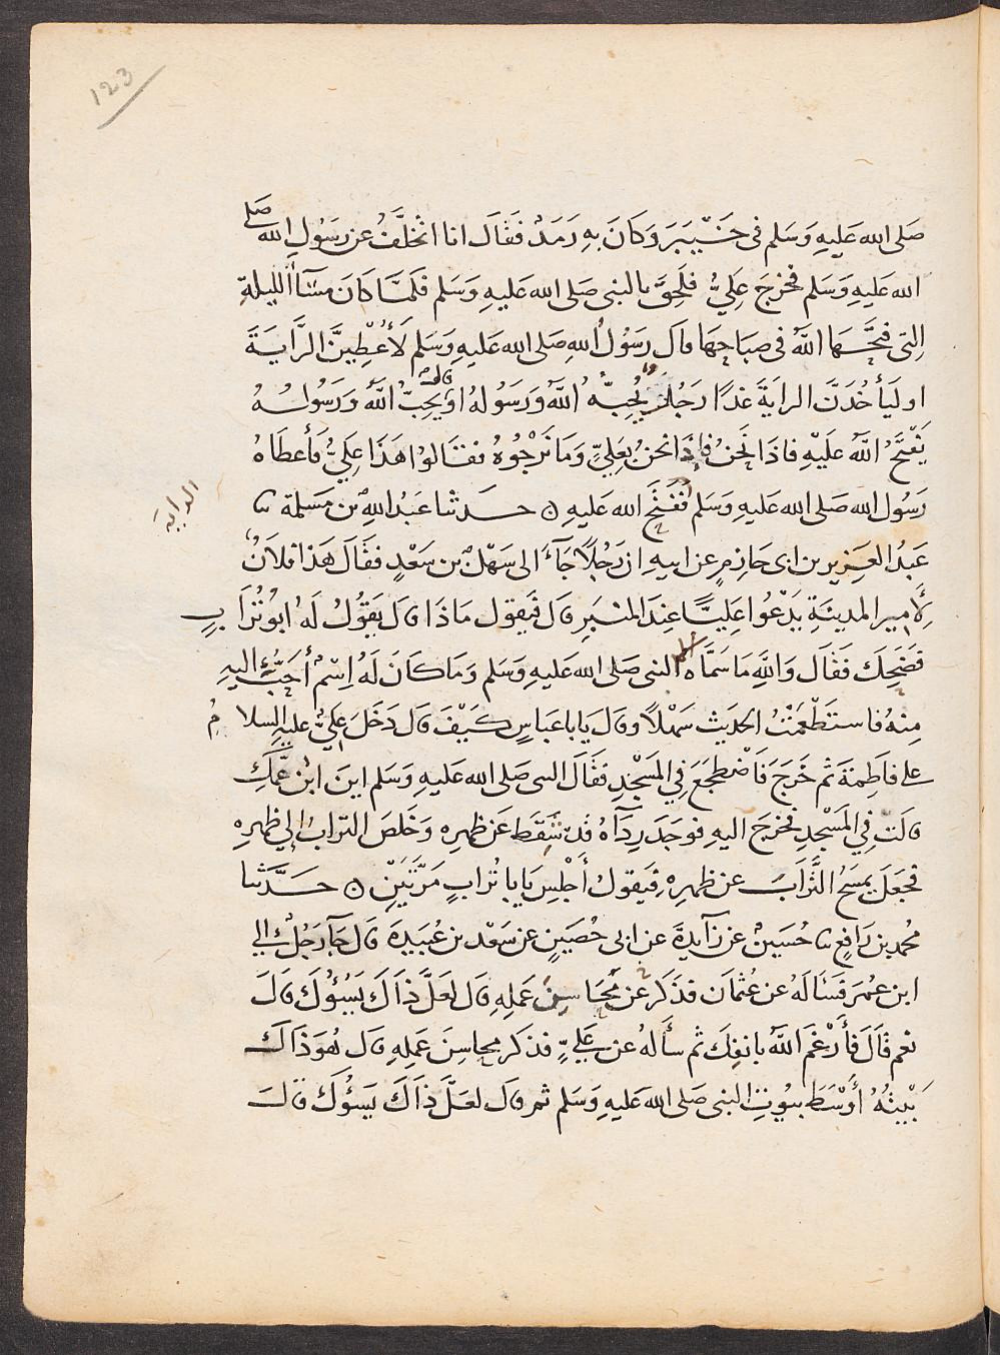 123
صَلى الله عَليهِ وَسَلم فى خَيْبَرَ وَكَانَ بِهِ رَمَدٌ فَقَالَ انا اتخلَّفُ عن رَسُولِ الله صَلى
الله عَليهِ وَسَلم فخرجَ عَلِيٌّ فلَحِقَ بالنبى صَلى الله عَليهِ وَسَلم فلمَّا كَانَ مسَآءُ الليلةِ
التِى فتحَهَا اللهُ فى صبَاحِهَا قال رَسُولُ اللهِ صَلى الله عَليهِ وَسَلم لَأُعْطِيَنَّ الرَّايَةَ
او ليَأخُذَنَّ الرايَةَ غدًا رَجُلٌ يُحِبُّهُ اللهُ وَرَسُولهُ او قال يُحِبُّ اللهَ وَرَسُولهُ
يَفْتَحُ اللهُ عَليْهِ فاذا نَحنُ فاذا نحنُ بعَلِيٍّ وَمَا نَرْجُوهُ فقالوا هَذا عَلِيٌّ فأعطَاهُ
رَسُول الله صَلى الله عَليهِ وَسَلم ففَتَحَ الله عَليهِ ٥ حدثنا عَبْدُ اللهِ بن مَسلمة ثنا
الراية
عَبدُ العَزِيزِ بن ابى حَازمٍ عن ابيهِ ان رَجُلًا جَآءَ الى سَهْلِ بن سَعْدٍ فقَالَ هَذا فلانٌ
لِأَمِير المدينَةِ يَدْعُوا عَلِيًّا عِندَ المنبَرِ قال فيَقول مَاذَا قال يَقُولُ لهُ ابو تُرَابٍ
فضَحِكَ فقَال وَاللهِ مَا سَمَّاهُ الا النبى صَلى الله عَليهِ وَسَلم وَمَا كَانَ لهُ اسْمٌ أَحَبَّ اليهِ
مِنهُ فاستَطْعَمْتُ الحَديث سَهْلًا وقال يَابا عَباسٍ كيْفَ قال دَخَلَ عَلِيٌّ عليهِ السلامُ
على فاَطِمَةَ ثم خَرَجَ فاَضْطجَعَ فِي المَسْجدِ فقَالَ النبى صَلى الله عَليهِ وَسَلم اينَ ابْن عَمِّكِ
قالت فِي المَسْجدِ فخرجَ اليهِ فوَجَدَ رِدَآهُ قد سَقَط عَن ظهرِه وَخَلصَ الترابُ الي ظهرِهِ
فجعَلَ يمسَحُ التُّرَابَ عن ظهرِهِ فيَقولُ أَجْلِسْ يَابا تُرابٍ مَرَّتَيْنِ ٥ حدَّثنا
محُمد بن رَافِعٍ ثنا حُسَينٌ عن زآيدةَ عن ابى حُصَينٍ عن سَعْد بن عُبَيدةَ قال جآرَجُلٌ الي
ابن عمُرَ فسَالهُ عن عُثمان فذكرَ عن مَحَاسِنِ عَمَلِهِ قال لعَلَّ ذاكَ يَسُؤُكَ قالَ
نعم قالَ فأَرْغمَ اللهُ بانفِكَ ثم سأَلهُ عن عَليٍّ فذكر محاسِنَ عَمَلِهِ قال هُوَ ذَاكَ
بَيْتُهُ أَوْسَط بيُوتِ النبى صَلى الله عَليهِ وَسَلم ثم قال لعَلَّ ذاَكَ يَسؤُكَ قالَ